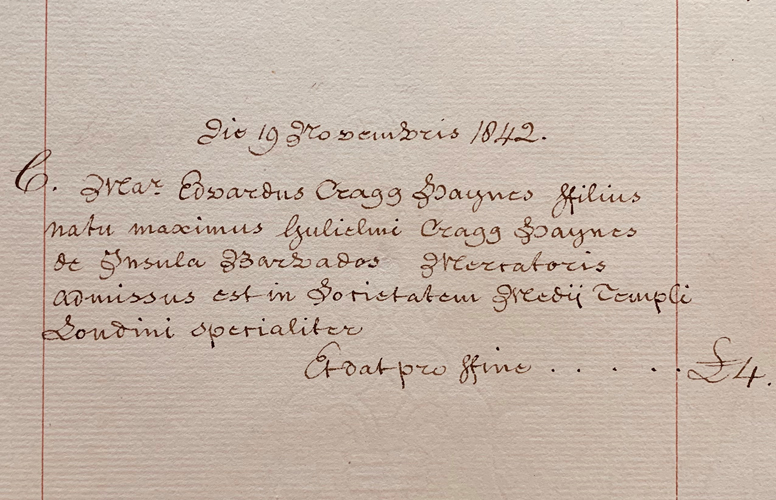 Die 19 Novembris 1842.
C. Mar Edvardus Cragg Haynes ffilius
natu maximus Gulielmi Cragg Haynes
de Insula Barbados Mercatoris
admissus est in Societatem Medij Templi
Londini specialiter
Et dat pro ffine . . . . . £4.